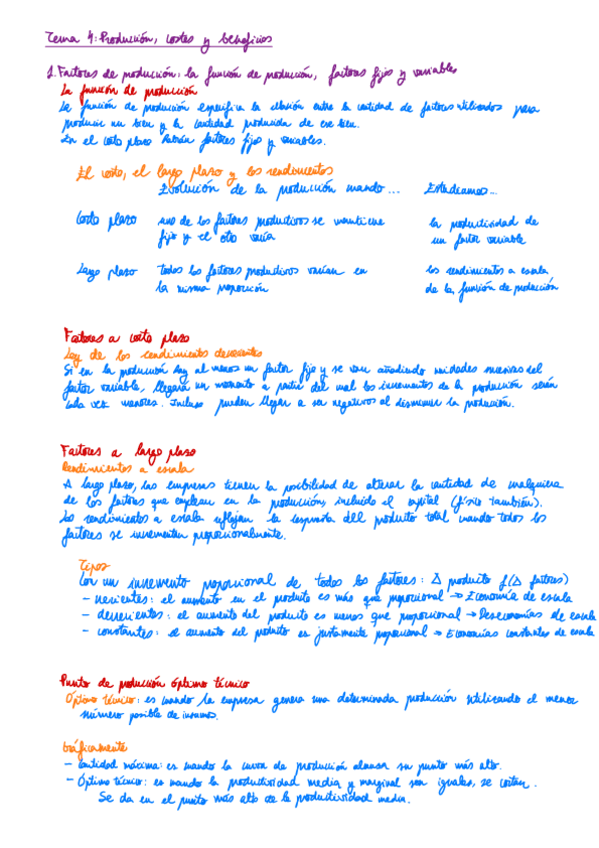 Tema 4: Producción, costes y beneficios
1. Factores de producción: la función de producción, factores fijos y variables
La función de producción
La función de producción especifica la relación entre la cantidad de factores utilizados para
producir un bien y la cantidad producida de ese bien.
En el corto plazo habrán factores fijos y variables.
El corto, el largo plazo y los rendimientos
Evolución de la producción cuando... Estudiamos...
Corto plazo uno de los factores productivos se mantiene la productividad de
fijo y el otro varía un factor variable
Largo plazo todos los factores productivos varían en los rendimientos a escala
la misma proporción de la función de producción
Factores a corto plazo
Ley de los rendimientos decrecientes
Si en la producción hay al menos un factor fijo y se van añadiendo unidades sucesivas del
factor variable, llegará un momento a partir del cual los incrementos de la producción serán
cada vez menores. Incluso pueden llegar a ser negativos al disminuir la producción.
Factores a largo plazo
Rendimientos a escala
A largo plazo, las empresas tienen la posibilidad de alterar la cantidad de cualquiera
de los factores que emplean en la producción, incluido el capital (físico también).
Los rendimientos a escala reflejan la respuesta del producto total cuando todos los
factores se incrementan proporcionalmente.
Tipos
Con un incremento proporcional de todos los factores: Δ producto f(Δ factores)
- crecientes: el aumento en el producto es más que proporcional → Economía de escala
- decrecientes: el aumento del producto es menos que proporcional → Deseconomías de escala
- constantes: el aumento del producto es justamente proporcional → Economías constantes de escala
Punto de producción óptimo técnico
Óptimo técnico: es cuando la empresa genera una determinada producción utilizando el menor
número posible de insumos.
Gráficamente
- Cantidad máxima: es cuando la curva de producción alcanza su punto más alto.
- Óptimo técnico: es cuando la productividad media y marginal son iguales, se cortan.
Se da en el punto más alto de la productividad media.